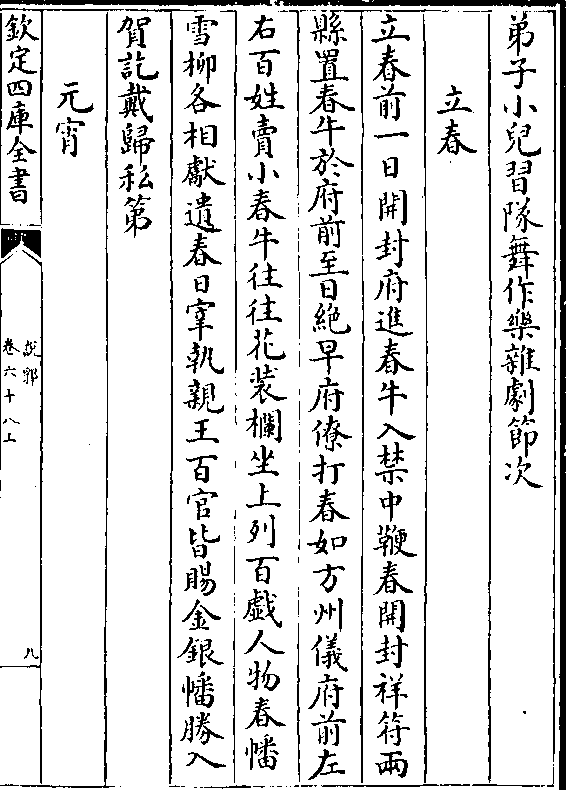 弟子小兒習隊舞作樂雜劇節次
立春
立春前一日開封府進春牛入禁中鞭春開封祥符兩
縣置春牛於府前至日絶早府僚打春如方州儀府前左
右百姓賣小春牛往往花装欄坐上列百戯人物春幡
雪柳各相獻遺春日宰執親王百官皆賜金銀幡勝入
賀訖戴歸私第
元宵
欽定四庫全書
說郛
卷六十八上
九